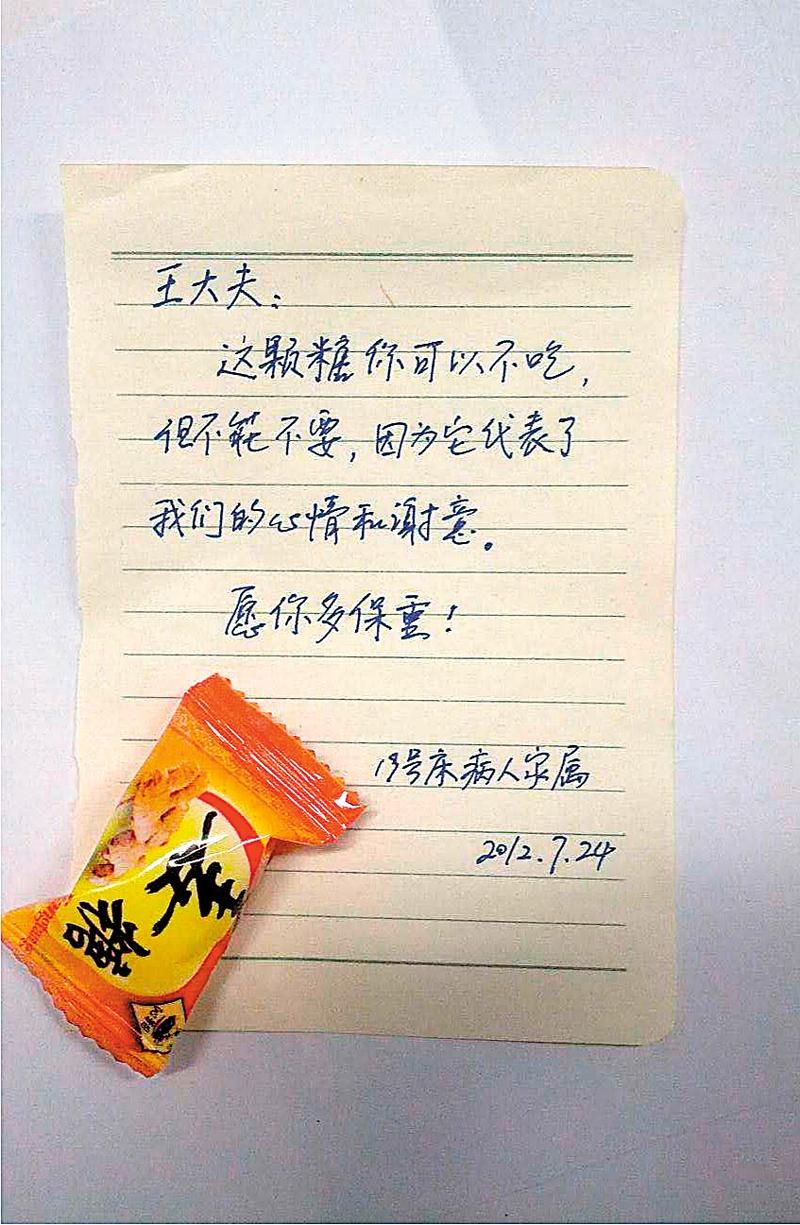 王大夫：
这颗糖你可以不吃，
但不能不要，因为它代表了
我们的心情和谢意。
愿你多保重！
19号床病人家属
2012.7.24